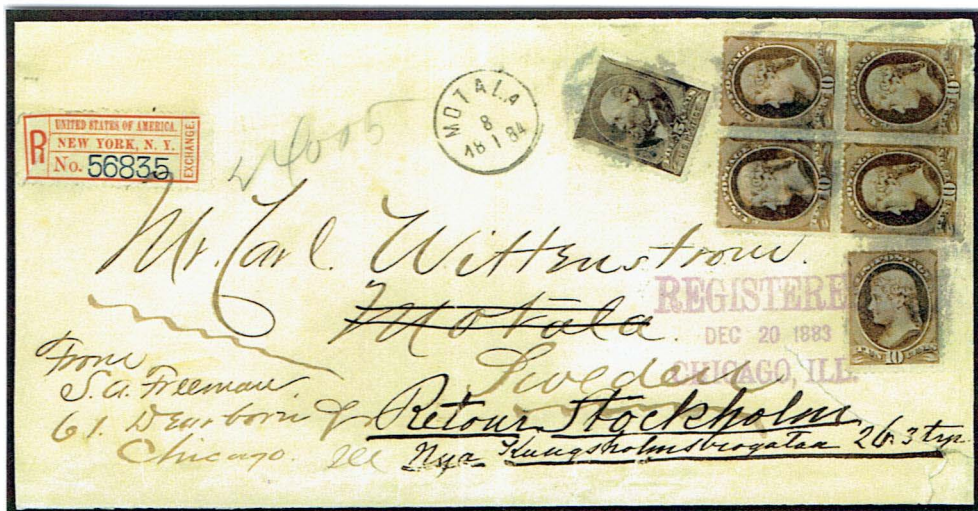 R
UNITED STATES OF AMERICA.
NEW YORK, N. Y.
No. 56835
EXCHANGE
24005
MOTALA
8
18 1 84
10
10
10
10
Mr. Carl Wittenstrom.
Motala
Sweden
REGISTERE
DEC 20 1883
CHICAGO, ILL.
10
From
S. A. Freeman
61. Dearborn
Chicago. Ill
Retour Stockholm
Nya Kungsholmsbrogatan 26. 3 trp.